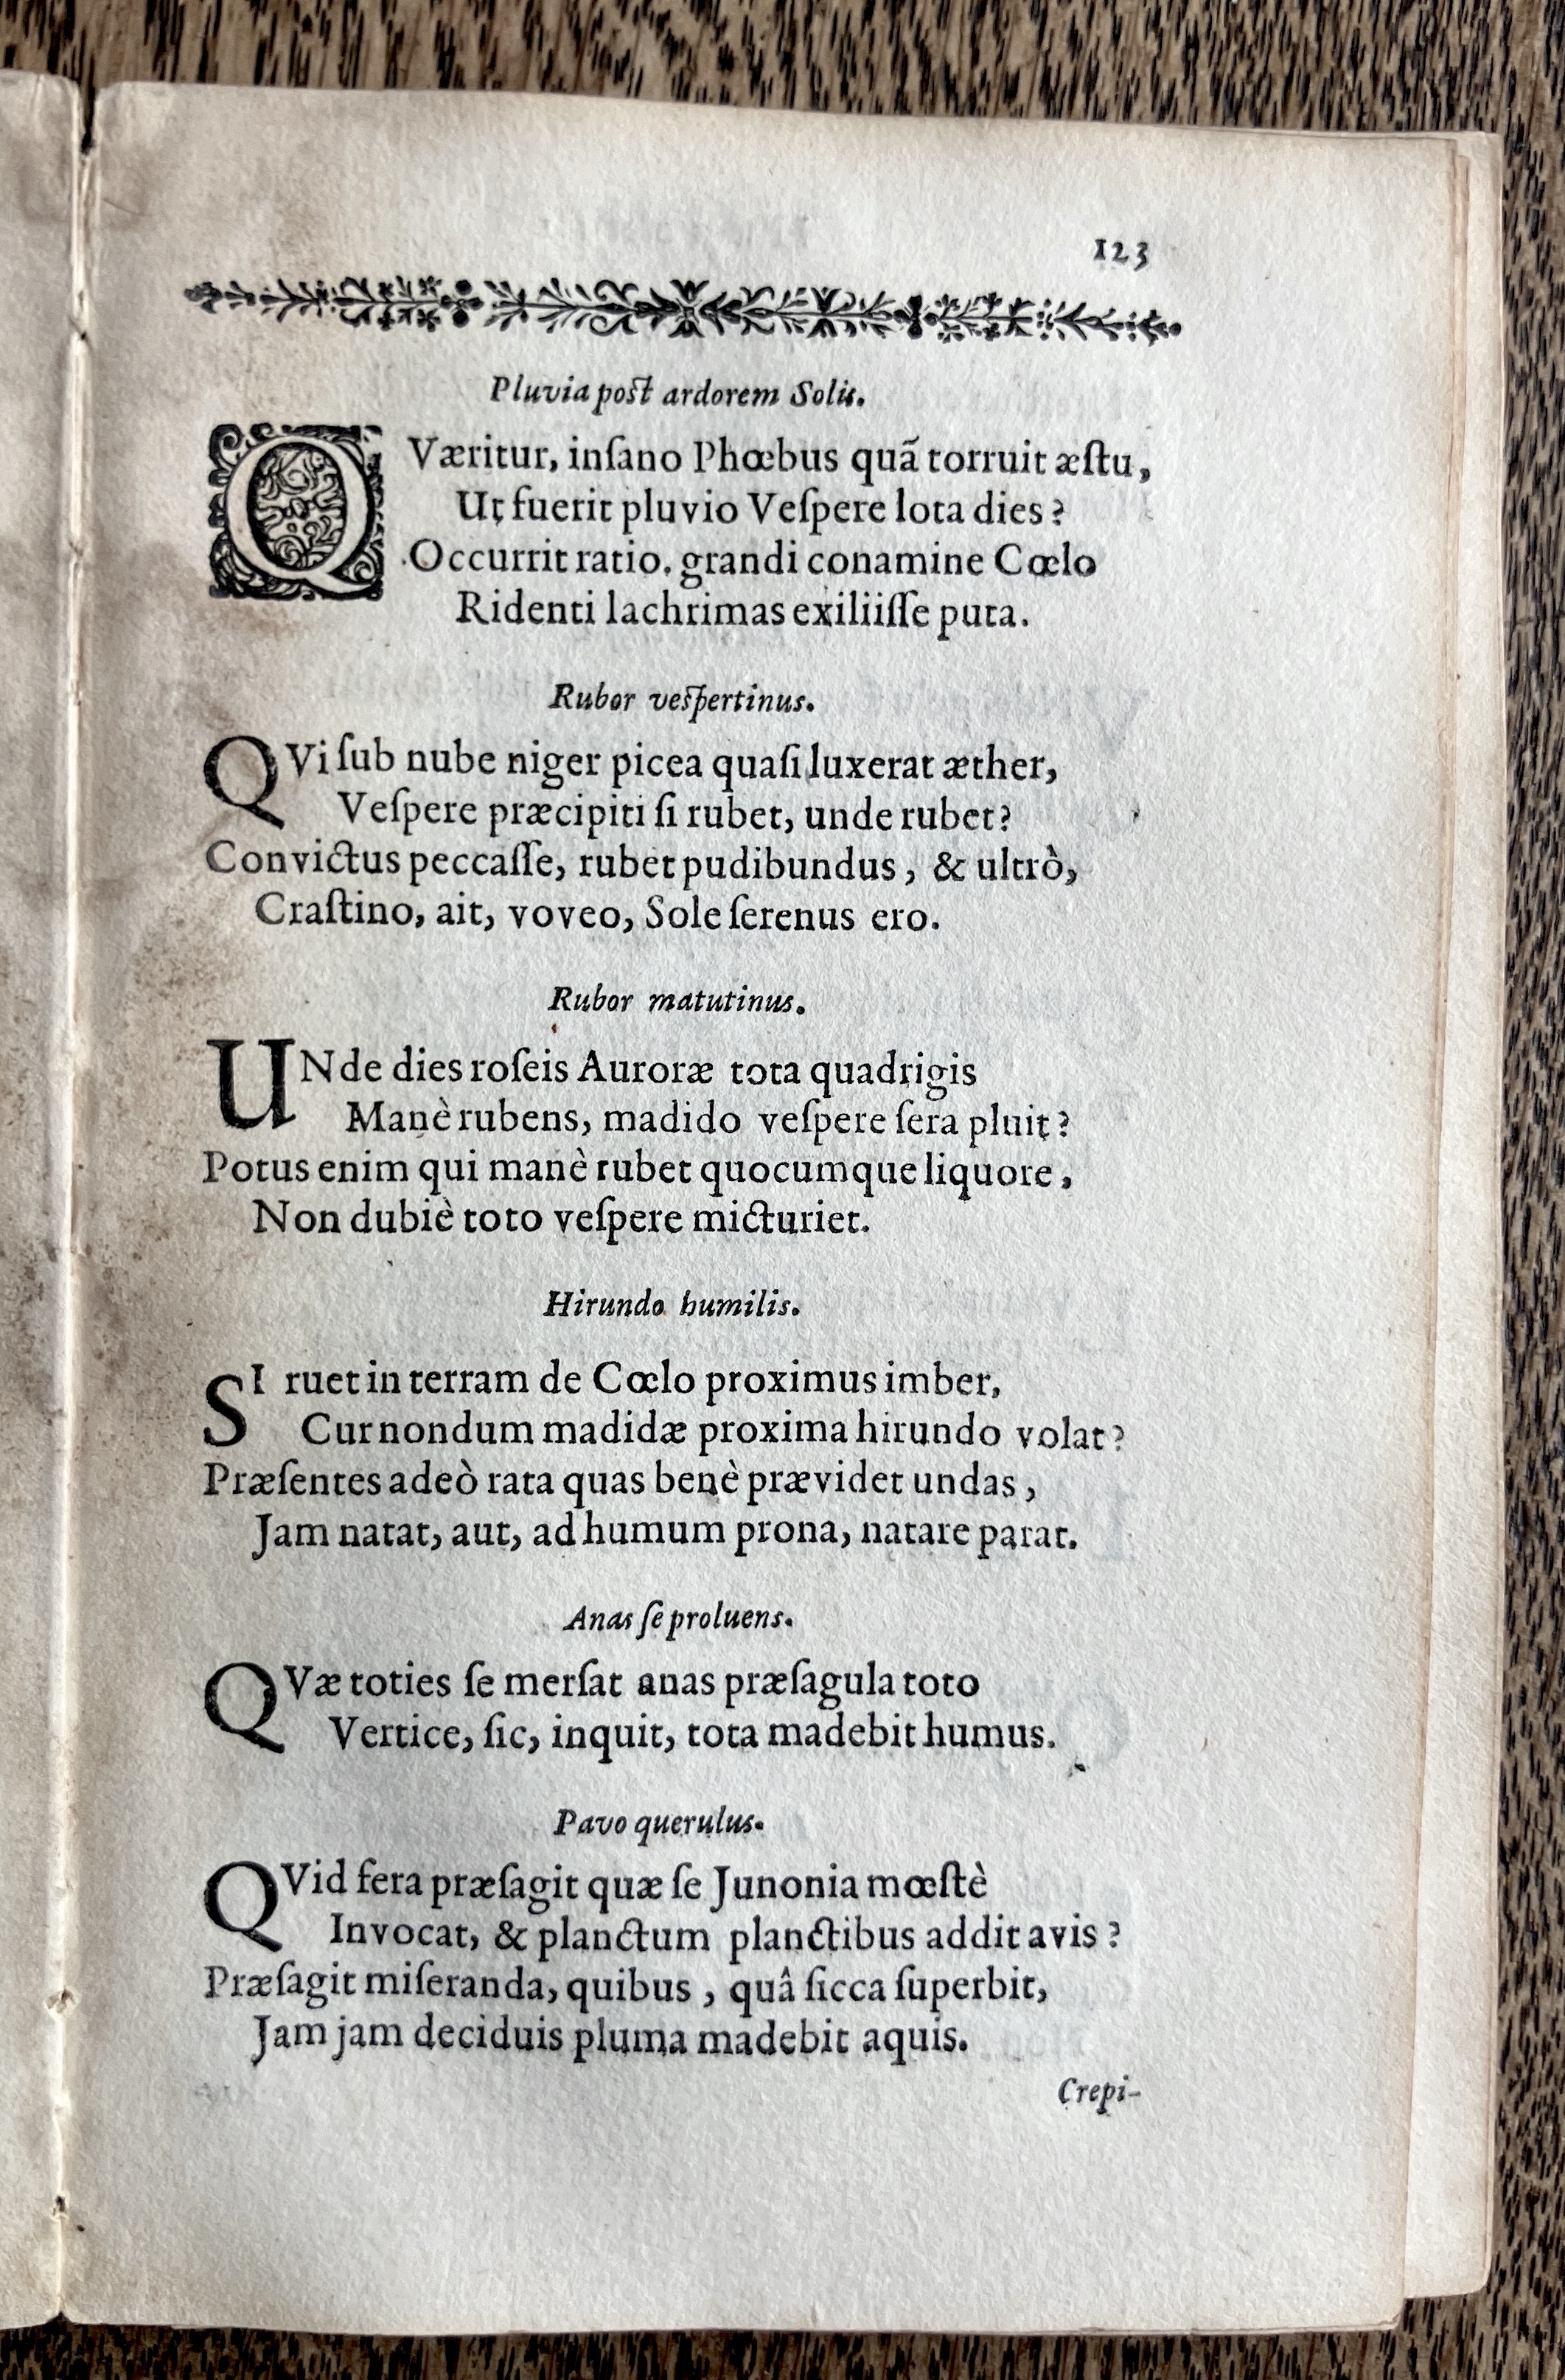 123
Pluvia poſt ardorem Solis.
QVæritur, inſano Phœbus quã torruit æſtu,
Ut fuerit pluvio Veſpere lota dies?
Occurrit ratio. grandi conamine Cœlo
Ridenti lachrimas exiliiſſe puta.
Rubor veſpertinus.
QVi ſub nube niger picea quaſi luxerat æther,
Veſpere præcipiti ſi rubet, unde rubet?
Convictus peccaſſe, rubet pudibundus, & ultrò,
Craſtino, ait, voveo, Sole ſerenus ero.
Rubor matutinus.
UNde dies roſeis Auroræ tota quadrigis
Manè rubens, madido veſpere ſera pluit?
Potus enim qui manè rubet quocumque liquore,
Non dubiè toto veſpere micturiet.
Hirundo humilis.
SI ruet in terram de Cœlo proximus imber,
Cur nondum madidæ proxima hirundo volat?
Præſentes adeò rata quas benè prævidet undas,
Jam natat, aut, ad humum prona, natare parat.
Anas ſe proluens.
QVæ toties ſe merſat anas præſagula toto
Vertice, ſic, inquit, tota madebit humus.
Pavo querulus.
QVid fera præſagit quæ ſe Junonia mœſtè
Invocat, & planctum planctibus addit avis?
Præſagit miſeranda, quibus, quâ ſicca ſuperbit,
Jam jam deciduis pluma madebit aquis.
Crepi-